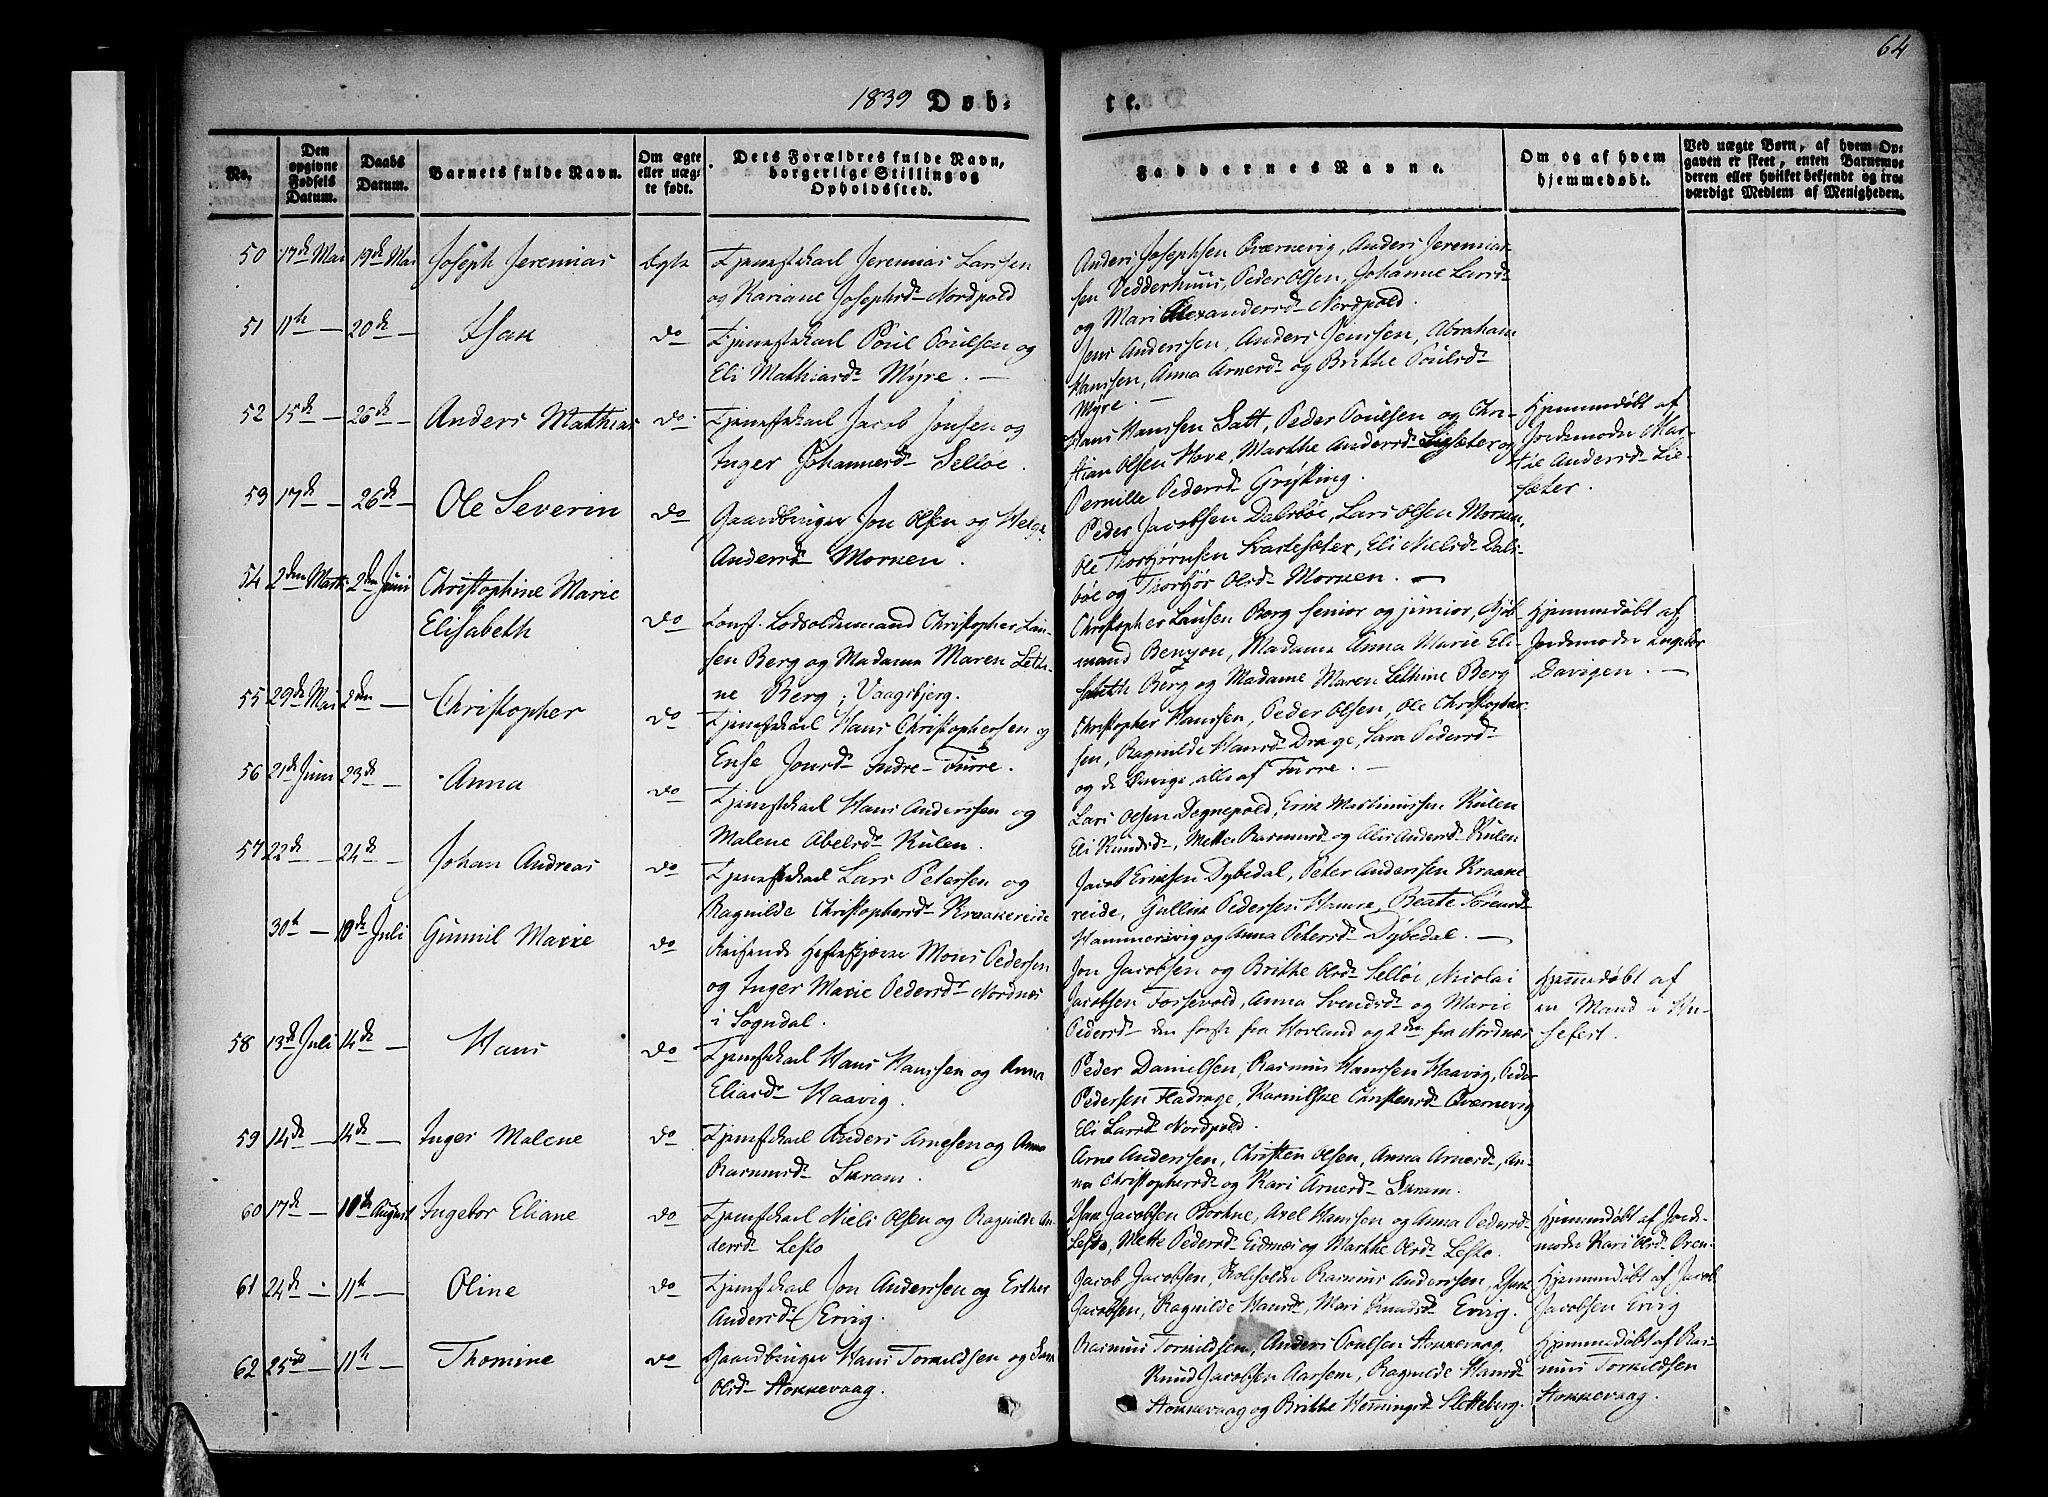 64
1839 Døb-
te.
No.
Den opgivne Fødsels Datum.
Daabs Datum.
Barnets fulde Navn.
Om ægte eller uægte født.
Dets Forældres fulde Navn, borgerlige Stilling og Opholdssted.
Faddernes Navne.
Om og af hvem hjemmedøbt.
Ved uægte Børn, af hvem Opgaven er skeet, enten Barnemoderen eller hvilket bekjendt og troværdigt Medlem af Menigheden.
50 17de Mai 19de Mai Joseph Jeremias Ægte Tjenestekarl Jeremias Larssen
og Kariane Josephsd. Nordpold
Anders Josephsen Qværnevig, Anders Jeremias-
sen Vedderhuus, Peder Olsen, Johanne Larsd.
og Mari Alexandersd. Nordpold.
51 11te — 20de — Isak do Tjenestekarl Poul Poulsen og
Eli Mathiasd. Myre. —
Jens Anderssen, Anders Jenssen, Abraham
Hanssen, Anna Arnesd. og Brithe Poulsd.
Myre. —
52 15de — 26de — Anders Mathias do. Tjenestekarl Jacob Jonsen og
Inger Johannesd. Selløe.
Hans Hanssen Satt, Peder Poulsen og Chri-
stian Olsen Hove, Marthe Andersd. Liesæter og
Pernille Pedersd. Grysking.
Hjemmedøbt af
Jordemoder Mar-
the Andersd. Lie-
sæter.
53 17de — 26de — Ole Severin do Gaardbruger Jon Olsen og Helge
Andersd. Morken.
Peder Jacobsen Dalsbøe, Lars Olsen Morken,
Ole Thorbjørnsen Svartesæter, Eli Nielsd. Dals-
bøe og Thorbjør Olsd. Morken. —
54 2den Marts 2den Juni Christophine Marie
Elisabeth do Const. Lodsoldermand Christopher Lau-
sen Berg og Madame Maren Lethi-
ne Berg, Vaagsbjerg.
Christopher Lausen Berg senior og junior, Kjøb-
mand Benzon, Madame Anna Marie Eli-
sabeth Berg og Madame Maren Lethine Berg
Hjemmedøbt af
Jordemoder Ingebor
Davigen. —
55 29de Mai 2den — Christopher do Tjenestekarl Hans Christophersen og
Ense Jonsd. Indre-Furre.
Christopher Hanssen, Peder Olsen, Ole Christopher-
sen, Ragnilde Hansd. Drage, Sara Pedersd.
og de Øvrige, alle af Furre. —
56 21de Juni 23de Anna do Tjenestekarl Hans Anderssen og
Malene Abelsd. Kulen.
Lars Olsen Degnepold, Erik Martinussen Kulen
Eli Knudsd., Mette Rasmusd. og Alis Andersd. Kulen
57 22de — 24de — Johan Andreas do Tjenestekarl Lars Petersen og
Ragnilde Christophersd. Kraakereide
Jacob Eriksen Dybedal, Peter Anderssen Kraake-
reide, Gullik Pedersen Hamre, Beate Sørensd.
Hammersvig og Anna Petersd. Dybedal. —
30te — 10de Juli Gunnil Marie do Reisende Hestekjører Mons Pedersen
og Inger Marie Pedersd. Nordnæs
i Sogndal.
Jon Jacobsen og Brithe Olsd. Selløe, Nicolai
Jacobsen Forsevold, Anna Svendsd. og Marie
Pedersd. den første fra Hovland og 2den fra Nordnæs
Hjemmedøbt af
en Mand i Hu-
sefest.
58 13de Juli 14de — Hans do Tjenestekarl Hans Hanssen og Anna
Eliasd. Haavig.
Peder Danielsen, Rasmus Hanssen Haavig, Peder
Pedersen Fladrage, Karnilske Christensd. Qværnevig
Eli Larsd. Nordpold.
59 14de — 14de — Inger Malene do Tjenestekarl Anders Arnesen og Anna
Rasmusd. Skram.
Arne Anderssen, Christen Olsen, Anna Arnesd., An-
na Christophersd. og Kari Arnesd. Skram.
60 17de — 10de August Ingebor Eliane do Tjenestekarl Niels Olsen og Ragnilde An-
dersd. Lesto
Isak Jacobsen Borkne, Axel Hanssen og Anna Pedersd.
Lesto, Mette Pedersd. Eidnæs og Marthe Olsd. Lesto.
Hjemmedøbt af Jorde-
moder Kari Olsd. Oren.
61 24de — 11te — Oline do Tjenestekarl Jon Anderssen og Esther
Andersd. Ervig.
Jacob Jacobsen, Rasmus Anderssen, Isak
Jacobsen, Ragnilde Hansd., Mari Knudsd. Ervig.
Hjemmedøbt af Jacob
Jacobsen Ervig
62 25de — 11te — Thomine do Gaardbruger Hans Torkildsen og
Olsd. Stokkevaag.
Rasmus Torkildsen, Anders Poulsen Stokkevaag
Knud Jacobsen Aarsem, Ragnilde Hansd.
Stokkevaag og Brithe Henningsd. Sletteberg.
Hjemmedøbt af Ras-
mus Torkildsen
Stokkevaag.